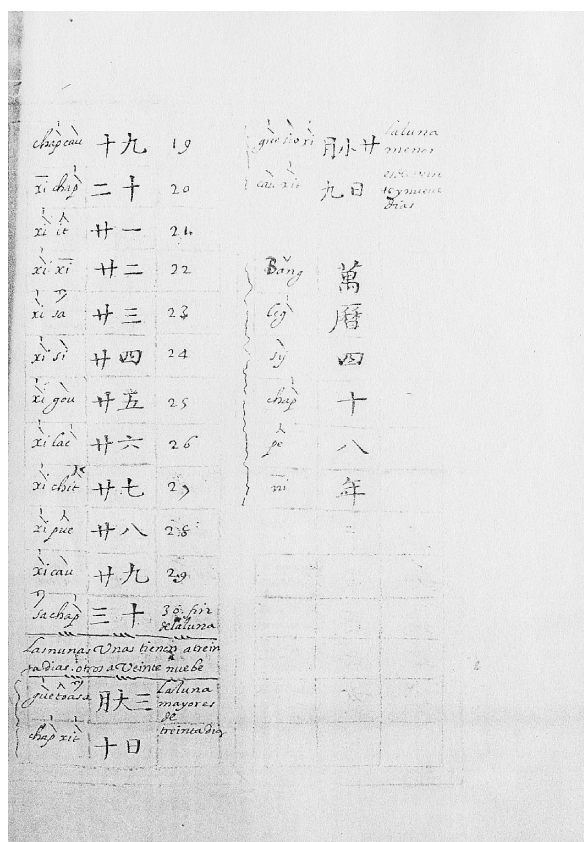 chap cau 十九 19
xi chap 二十 20
xi it 廿一 21
xi xi 廿二 22
xi sa 廿三 23
xi si 廿四 24
xi gou 廿五 25
xi lac 廿六 26
xi chit 廿七 27
xi pue 廿八 28
xi cau 廿九 29
sa chap 三十 30. fin
de la luna
Las nunas Unas tienen atrein
ta dias. otros a Veinte nuebe
guetoasa 月大三 la luna
mayores
de
chap xit 十日 treinta dias
gue sio xi 月小廿 la luna
menor
cau xit 九日
dias
Bang 萬
leg 曆
sy 四
chap 十
pe 八
ni 年